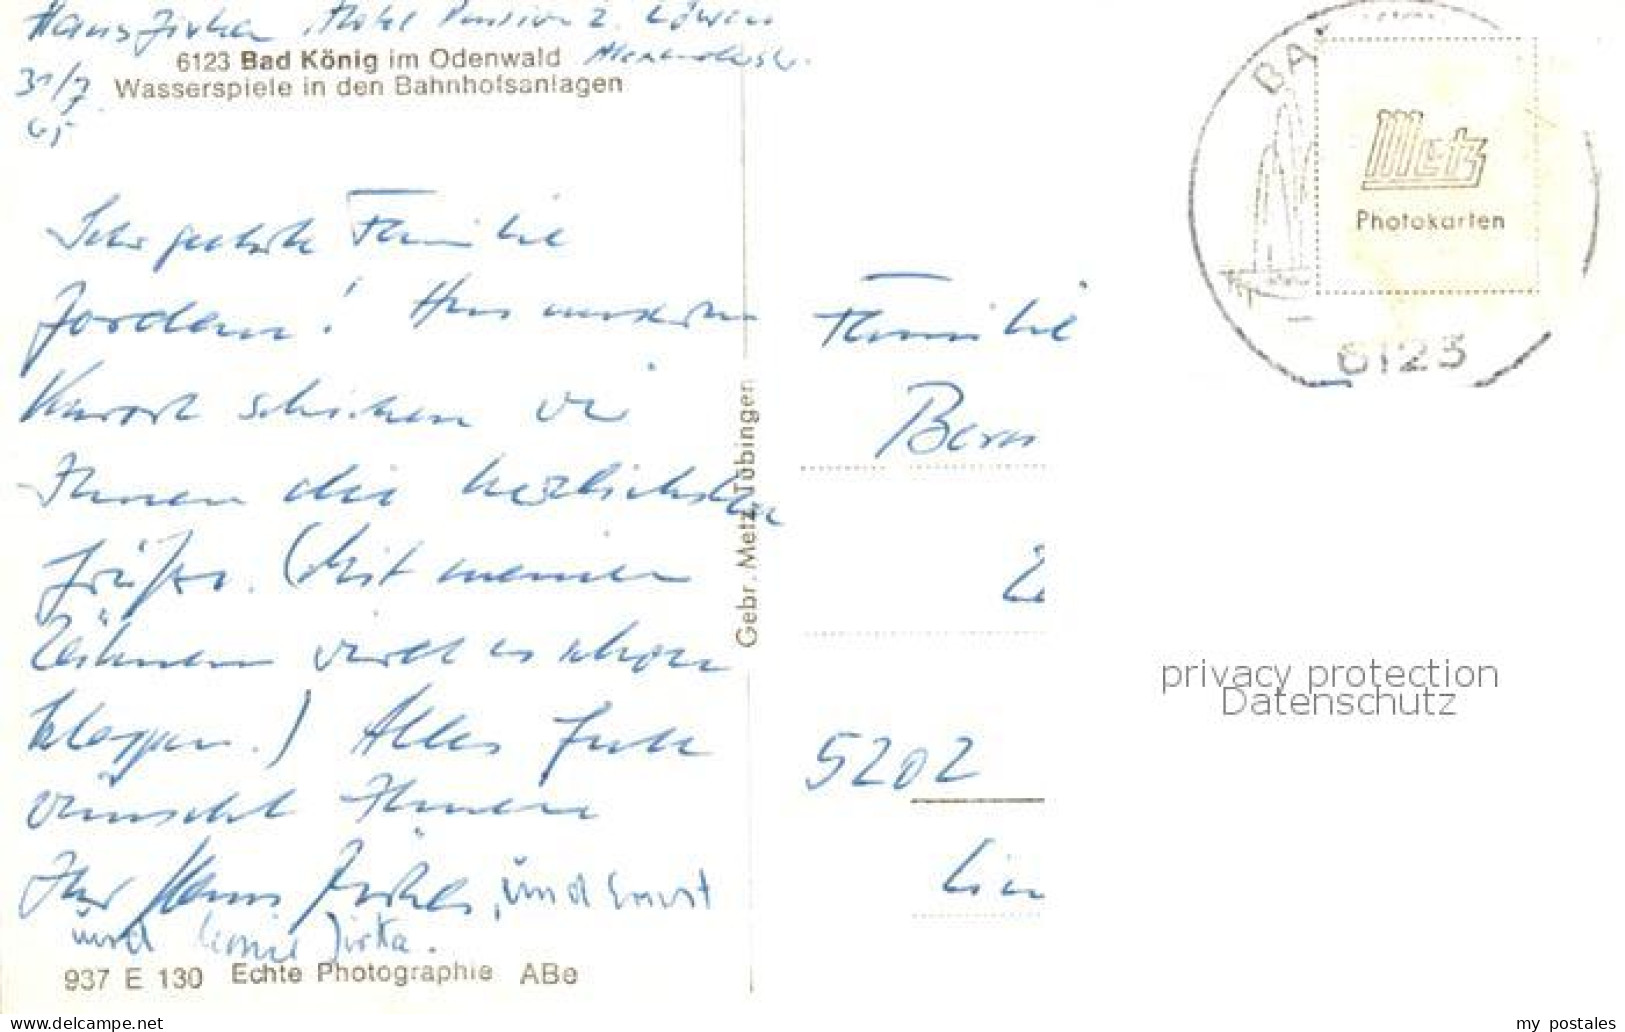 Hans Jirka, Hotel Pension z. Löwen
6123 Bad König im Odenwald
31/7
Wasserspiele in den Bahnhofsanlagen
65
Sehr geehrte Familie
Jordan! Aus unserem
Kurort schicken wir
Ihnen die herzlichsten
Grüße. (Mit meinen
Zähnen wird es schon
klappen.) Alles Gute
wünscht Ihnen
Ihr Hans Jirka, und Ernst
und Jirka.
937 E 130 Echte Photographie ABe
Gebr. Metz, Tübingen
BA
Metz
Photokarten
6123
Familie
5202
privacy protection
Datenschutz
www.delcampe.net
my_postales